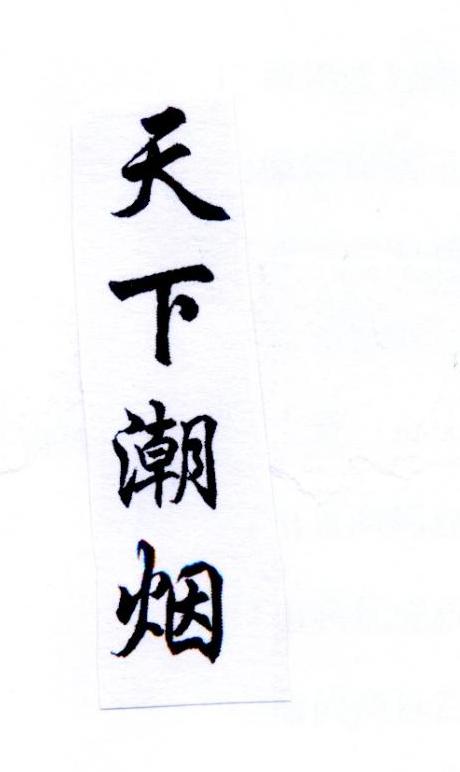 天下潮烟